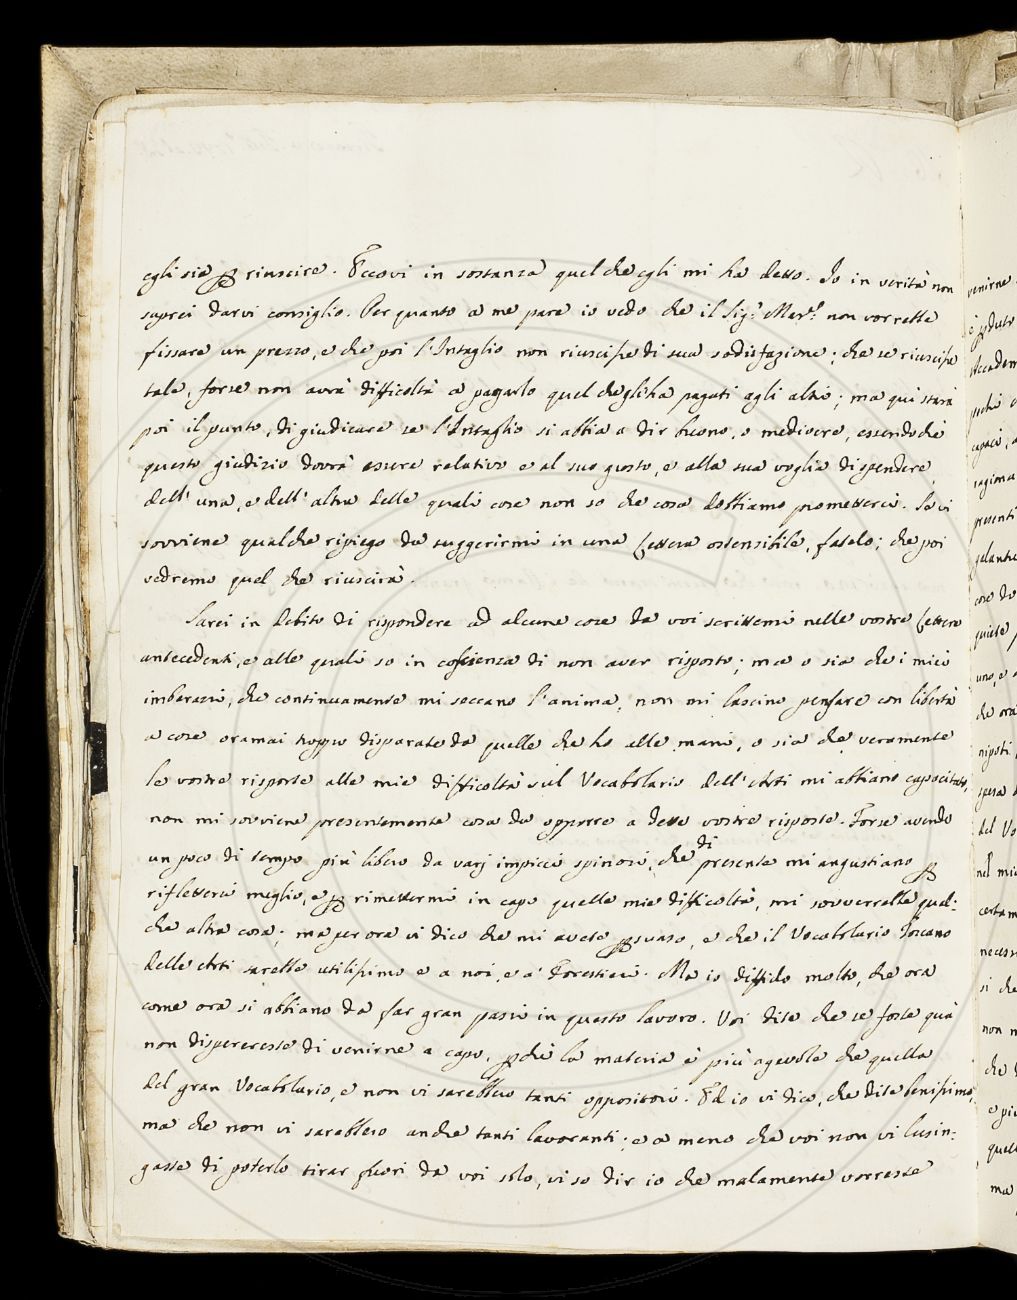 egli sia per riuscire. Eccovi in sostanza quel che egli mi ha detto. Io in verità non
saprei darvi consiglio. Per quanto a me pare io vedo che il Sig.r Mar.l non vorrebbe
fissare un prezzo, e che poi l'Intaglio non riuscisse di sua sodisfazione; che se riuscisse
tale, forse non avrà difficoltà a pagarlo quel che gli ha pagati agli altri; ma qui starà
poi il punto, di giudicare se l'Intaglio si abbia a dir buono, o mediocre, essendo che
questo giudizio dovrà essere relativo e al suo gusto, e alla sua voglia di spendere,
dell' una, e dell' altra delle quali cose non so che cosa dobbiamo prometterci. Se vi
sovviene qualche ripiego da suggerirmi in una Lettera ostensibile, fatelo; che poi
vedremo quel che riuscirà.
Sarei in debito di rispondere ad alcune cose da voi scrittemi nelle vostre Lettere
antecedenti, e alle quali so in coscienza di non aver risposto; ma o sia che i miei
imbarazzi, che continuamente mi seccano l'anima, non mi lascino pensare con libertà
a cose oramai troppo disparate da quelle che ho alle mani, o sia che veramente
le vostre risposte alle mie difficoltà sul Vocabolario dell'Arti mi abbiano capacitato,
non mi sovviene presentemente cosa da opporre a dette vostre risposte. Forse avendo
un poco di tempo più libero da varj impicci spinosi, che di presente mi angustiano per
rifletterci meglio, e per rimettermi in capo quelle mie difficoltà, mi sovverrebbe qual-
che altra cosa; ma per ora vi dico che mi avete persuaso, e che il Vocabolario Toscano
delle Arti sarebbe utilissimo e a noi, e a' Forestieri. Ma io diffido molto, che ora
come ora si abbiano da far gran passi in questo lavoro. Voi dite che se foste quà
non disperereste di venirne a capo, perchè la materia è più agevole che quella
del gran Vocabolario, e non vi sarebbero tanti oppositori. Ed io vi dico, che dite benissimo,
ma che non vi sarebbero anche tanti lavoranti; e a meno che voi non vi lusin-
gaste di poterlo tirar fuori da voi solo, vi so dir io che malamente vorreste